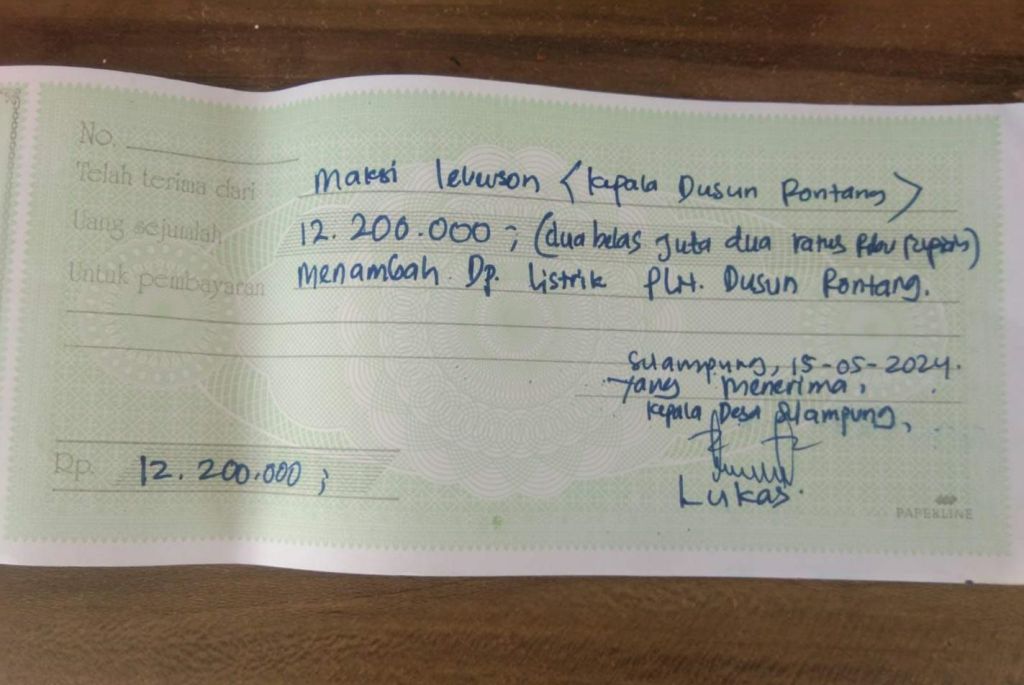 No.
Telah terima dari Maksi leluwson (kepala Dusun Rontang)
Uang sejumlah 12.200.000; (dua belas juta dua ratus Ribu rupiah)
Untuk pembayaran Menambah Dp. listrik PLN. Dusun Rontang.
Silampung, 15-05-2024.
Yang menerima,
kepala Desa Silampung,
Lukas.
Rp. 12.200.000;
PAPERLINE